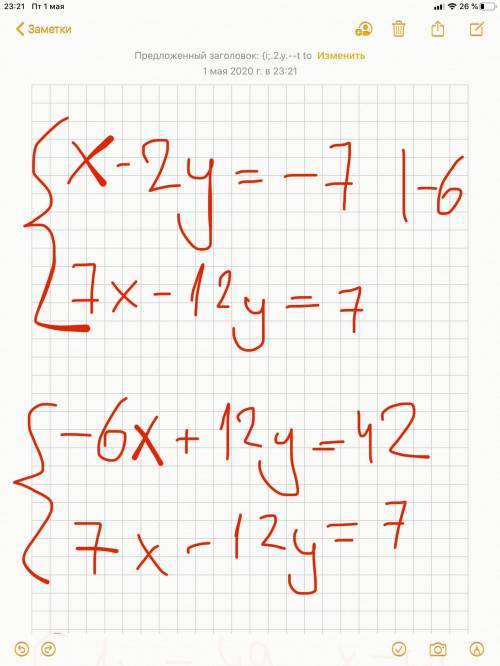 23:21 Пт 1 мая 26 %
Заметки
Предложенный заголовок: {i;.2.y.--t to Изменить
1 мая 2020 г. в 23:21
x - 2y = -7 |-6
7x - 12y = 7
-6x + 12y = 42
7x - 12y = 7